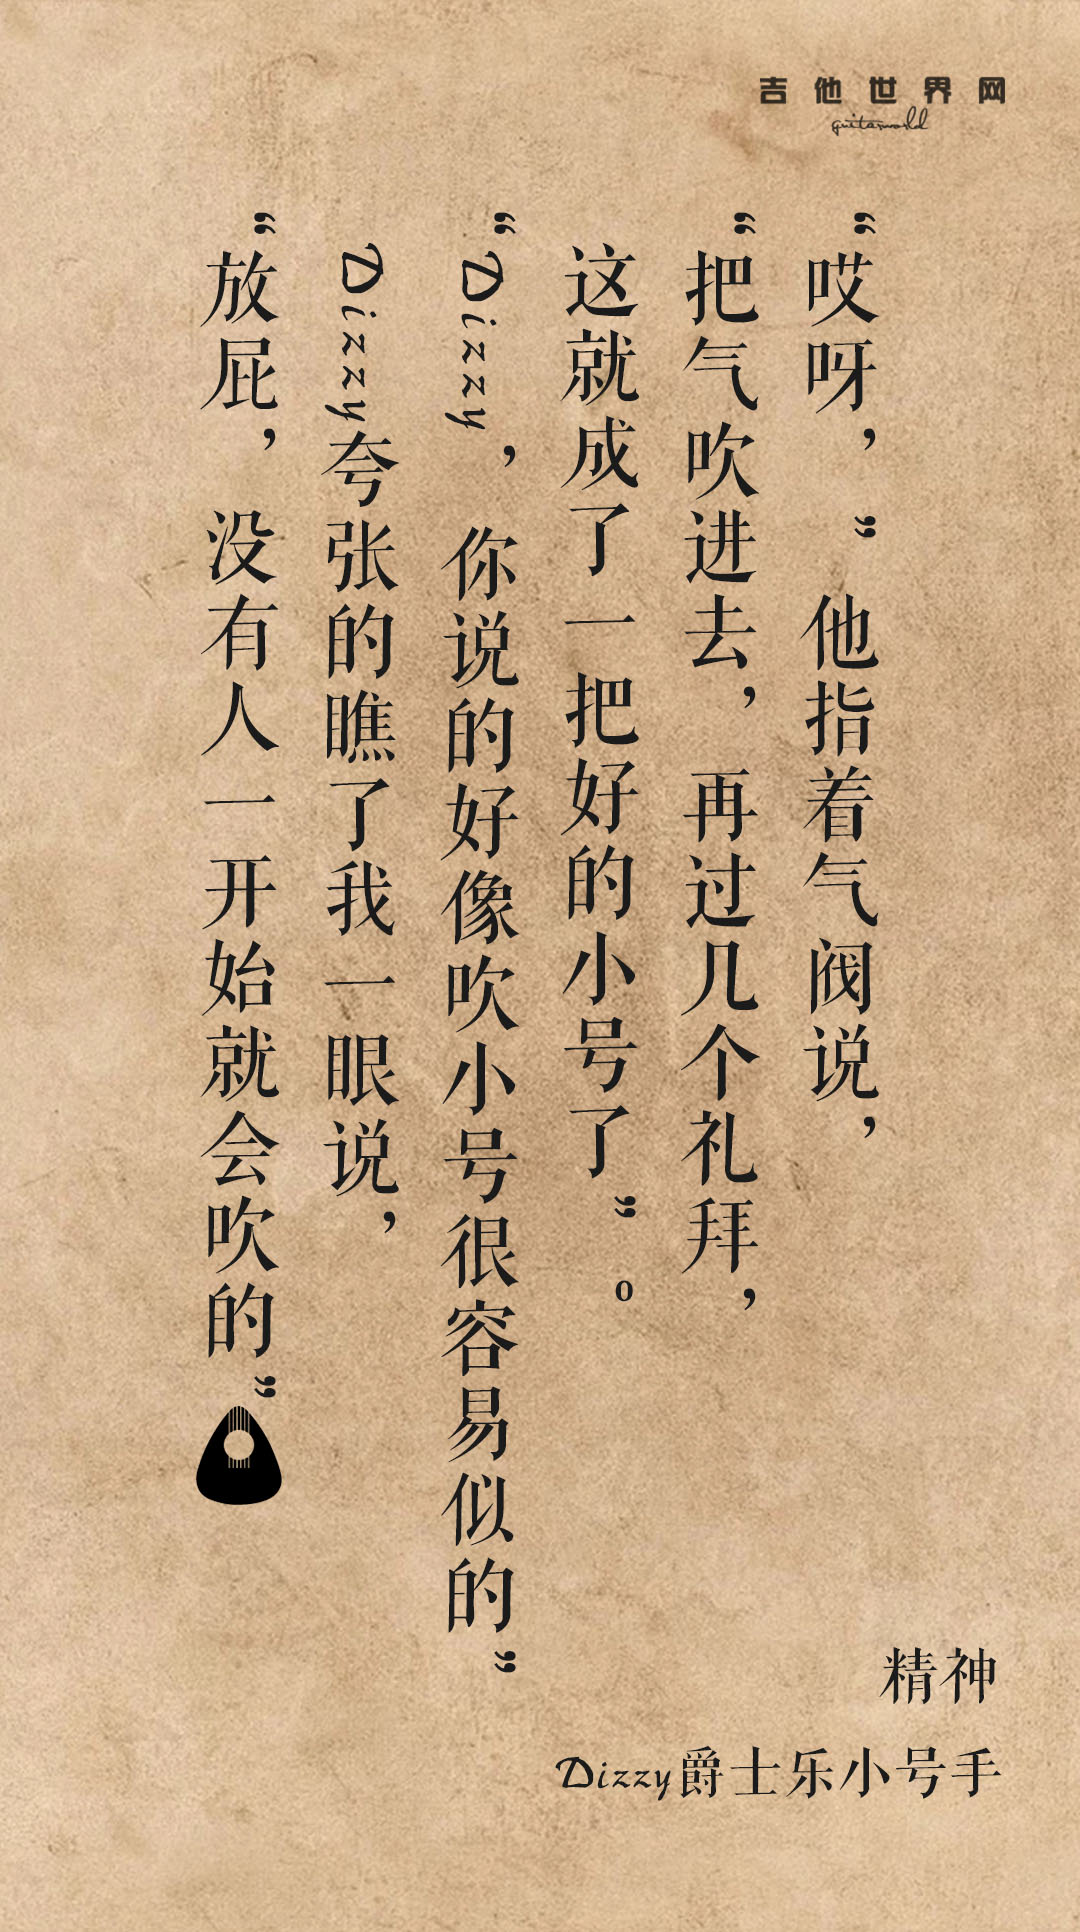 吉他世界网
guitarworld
“哎呀，”他指着气阀说，
“把气吹进去，再过几个礼拜，
这就成了一把好的小号了”。
“Dizzy，你说的好像吹小号很容易似的”
Dizzy夸张的瞧了我一眼说，
“放屁，没有人一开始就会吹的”
精神
Dizzy爵士乐小号手